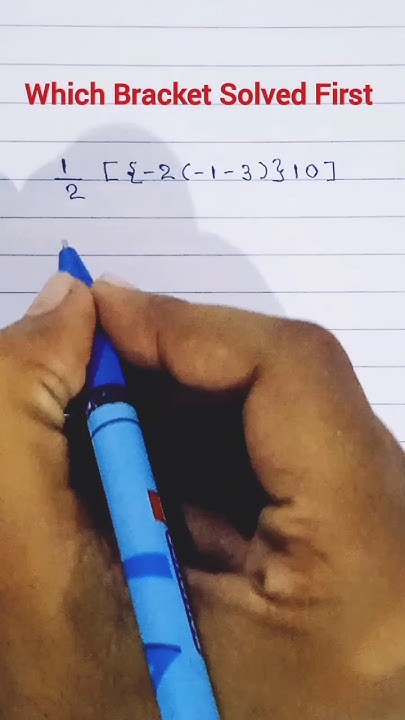 Which Bracket Solved First
1/2 [{-2(-1-3)}10]